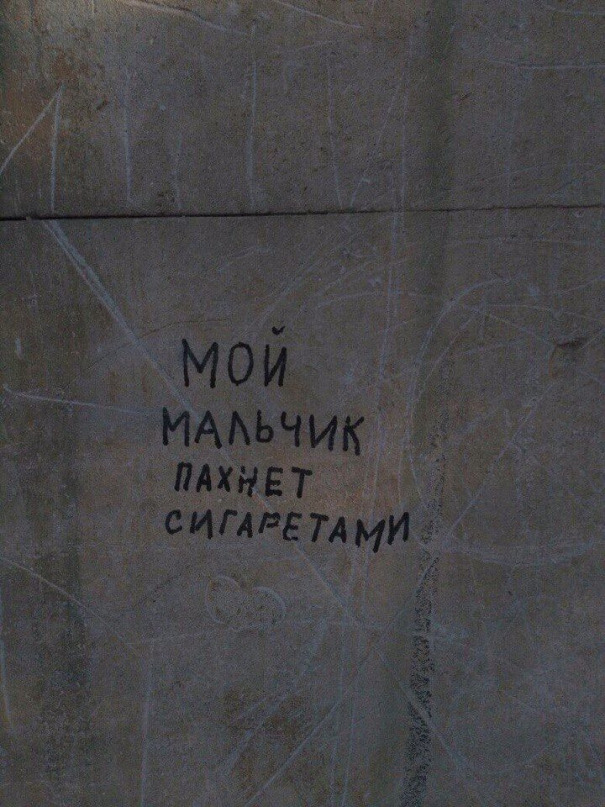 МОЙ
МАЛЬЧИК
ПАХНЕТ
СИГАРЕТАМИ